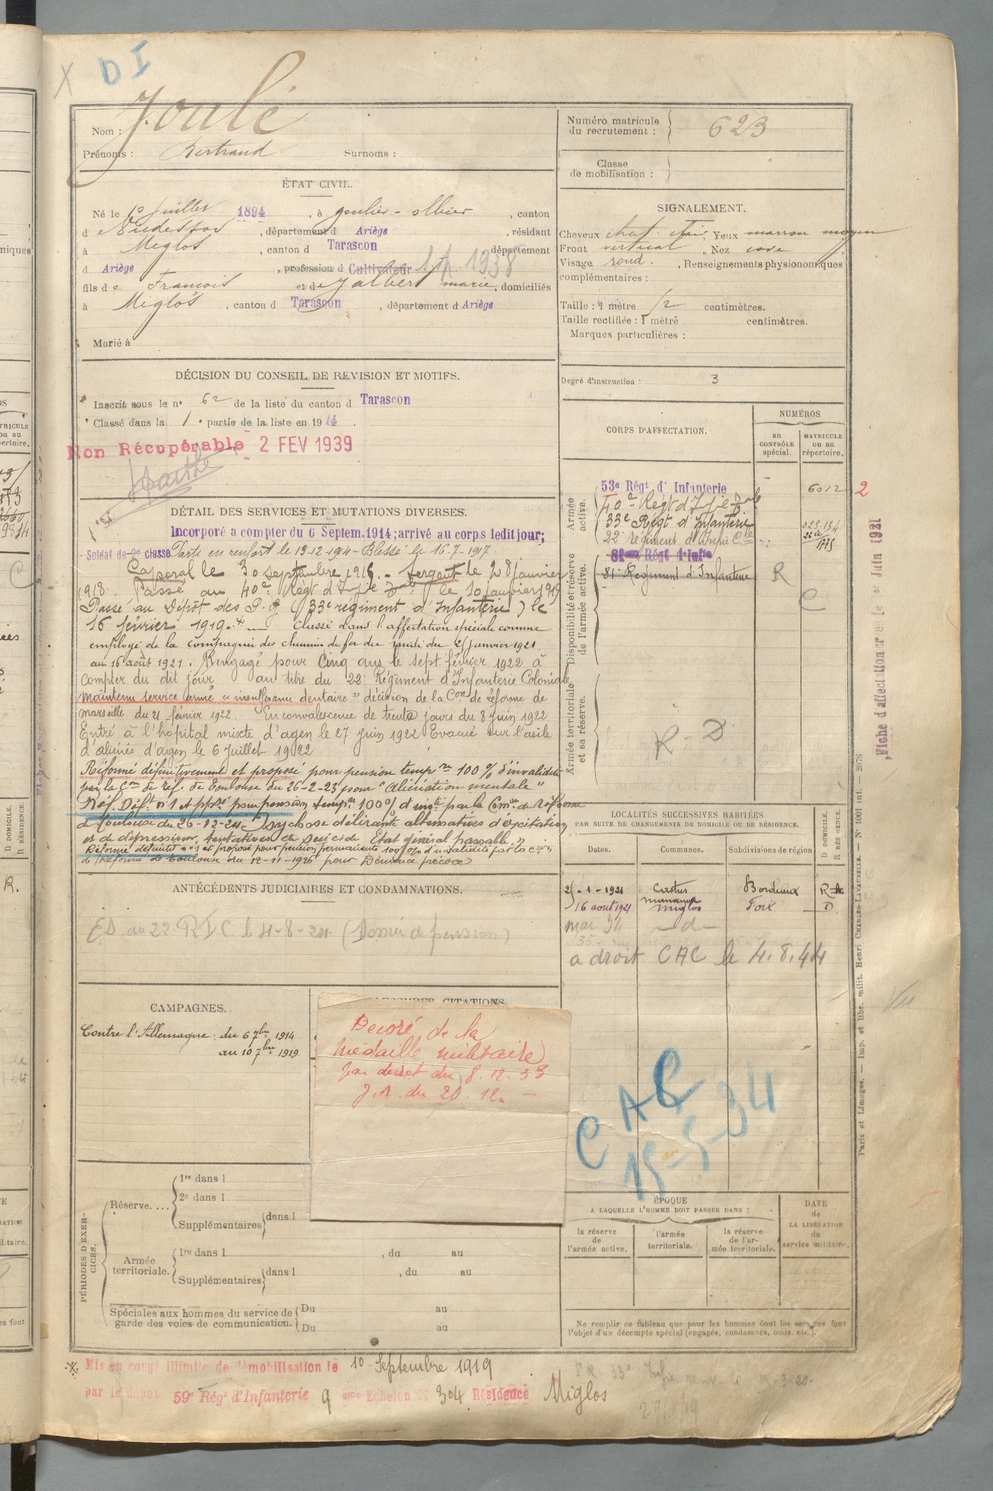 X D I
Joulé
Nom :
Prénoms : Bertrand Surnoms :
Numéro matricule du recrutement : 623
Classe de mobilisation :
ÉTAT CIVIL.
Né le 1er juillet 1894, à goulier-olbier, canton
d e Vicdessos, département d Ariège, résidant
à Miglos, canton d Tarascon, département
d Ariège, profession d Cultivateur 1938
fils d e Francois et de Jalbert marie, domiciliés
à Miglos, canton d Tarascon, département d Ariège
Marié à
SIGNALEMENT.
Cheveux chat. clair. Yeux marron moyen
Front vertical, Nez cave
Visage rond. , Renseignements physionomiques
complémentaires :
Taille : 1 mètre centimètres.
Taille rectifiée : 1 mètre centimètres.
Marques particulières :
Degré d'instruction : 3
DÉCISION DU CONSEIL DE REVISION ET MOTIFS.
Inscrit sous le nº 62 de la liste du canton d Tarascon
Classé dans la 1e partie de la liste en 1914.
Non Récupérable 2 FEV 1939
DÉTAIL DES SERVICES ET MUTATIONS DIVERSES.
Incorporé a compter du 6 Septem. 1914; arrivé au corps ledit jour;
Soldat de 2me classe Parti en renfort le 13-12-1914 - Blessé le 16-7-1917.
Caporal le 30 Septembre 1916. - Sergent le 28 janvier
1918. Passé au 40e Régt d'Infie le 10 janvier 1919
Passé au Dépôt des P.G. (33e régiment d'Infanterie) le
16 février 1919. Classé dans l'affectation spéciale comme
employé de la compagnie des chemins de fer du midi du 21 janvier 1921
au 16 août 1921. Rengagé pour Cinq ans le sept février 1922 à
compter du dit jour au titre du 22e Régiment d'Infanterie Coloniale
Maintenu service armé "insuffisance dentaire" décision de la Con de réforme de
marseille du 21 février 1922. En convalescence de trente jours du 8 juin 1922
Entré à l'hôpital mixte d'agen le 27 juin 1922 Evacué sur l'asile
d'aliénés d'agen le 6 juillet 1922
Réformé définitivement et proposé pour pension tempre 100% d'invalidité
par la Con de réf. de Toulouse du 26-2-23 pour "Aliénation mentale"
Réf. Déft nº1 et ppsé pour pension tempre 100% d'invté par la Comon de Réforme
de Toulouse du 26-12-24 Psychose délirante alternatives d'excitation
et de dépression, tentatives de suicide Etat général passable."
Réformé définitif nº1 et proposé pour pension permanente 100% d'invalidité par la Con
de Réforme de Toulouse du 12-11-1926 pour Démence précoce
CORPS D'AFFECTATION.
NUMÉROS
au CONTRÔLE spécial.
MATRICULE ou au répertoire.
Armée active.
53e Régt d'Infanterie 6012 2
40e Régt d'Infie
33e Régt d'Infanterie
22e régiment d'Infrie Cle
Disponibilité et réserve de l'armée active.
81e Régiment d'Infanterie R
C
Armée territoriale et sa réserve.
R - D
Fiche d'affectation créée le 1er Juin 1921
LOCALITÉS SUCCESSIVES HABITÉES
PAR SUITE DE CHANGEMENTS DE DOMICILE OU DE RÉSIDENCE.
Dates. Communes. Subdivisions de région D DOMICILE. R RÉSIDENCE.
21-1-1921 Castres Bordeaux R
16 août 1921 Miglos Foix D
mai 34 d
a droit CAC le 4.8.44
CAC
15-5-34
ANTÉCÉDENTS JUDICIAIRES ET CONDAMNATIONS.
E.D. au 22 R I C le 4-8-24 (Dossier de pension)
CAMPAGNES.
Contre l'Allemagne du 6 7bre 1914
au 10 7bre 1919
BLESSURES, CITATIONS
Décoré de la
Médaille militaire
par décret du 8.12.33
J.O. du 20.12. -
PÉRIODES D'EXERCICES.
Réserve.... 1re dans l
2e dans l
Supplémentaires dans l
Armée territoriale. 1re dans l , du au
Supplémentaires dans l , du au
Spéciales aux hommes du service de garde des voies de communication. Du au
Du au
ÉPOQUE
A LAQUELLE L'HOMME DOIT PASSER DANS :
la réserve de l'armée active.
l'armée territoriale.
la réserve de l'armée territoriale.
DATE de LA LIBÉRATION du service militaire.
Ne remplir ce tableau que pour les hommes dont les services font
l'objet d'un décompte spécial (engagés, condamnés, omis, etc.)
Paris et Limoges. — Imp. et libr. milit. Henri CHARLES-LAVAUZELLE.
Mis en congé illimité de démobilisation le 10 Septembre 1919
par le dépôt 59e Régt d'Infanterie 9 eme Echelon Nº 304 Résidence Miglos